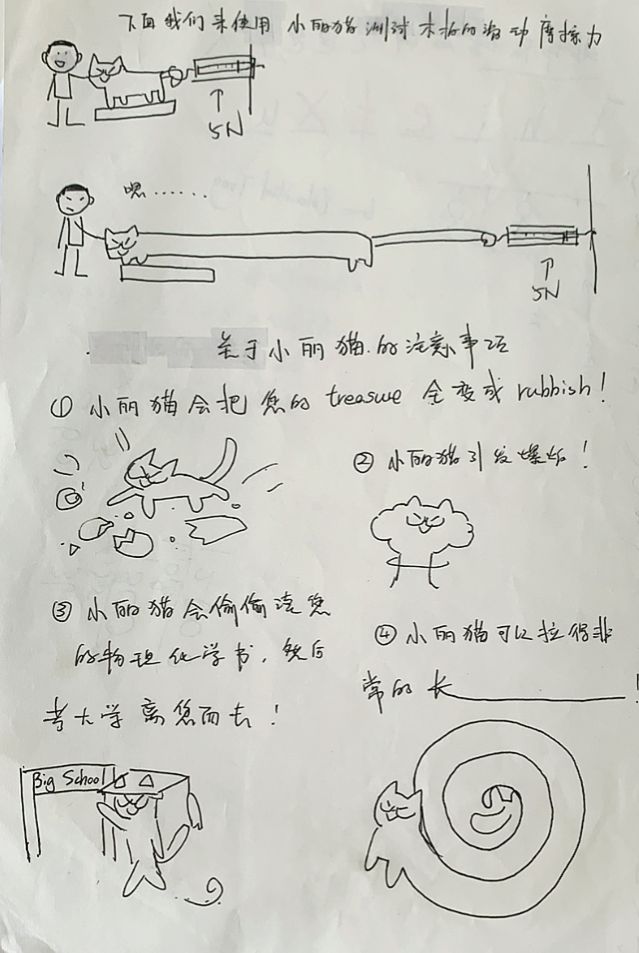 下面我们来使用 小丽猫 测试 木板的滑动摩擦力
5N
嗯......
5N
关于小丽猫的注意事项
① 小丽猫会把您的 treasure 全变成 rubbish!
② 小丽猫引发爆炸!
③ 小丽猫会偷偷读您
的物理化学书,然后
考大学离您而去!
④ 小丽猫可以拉得非
常的长————!
Big School